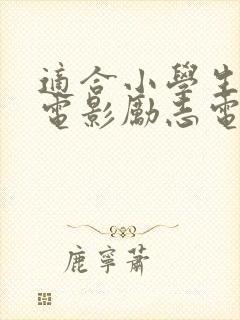 適合小學生
電影勵志電
鹿寧蕭